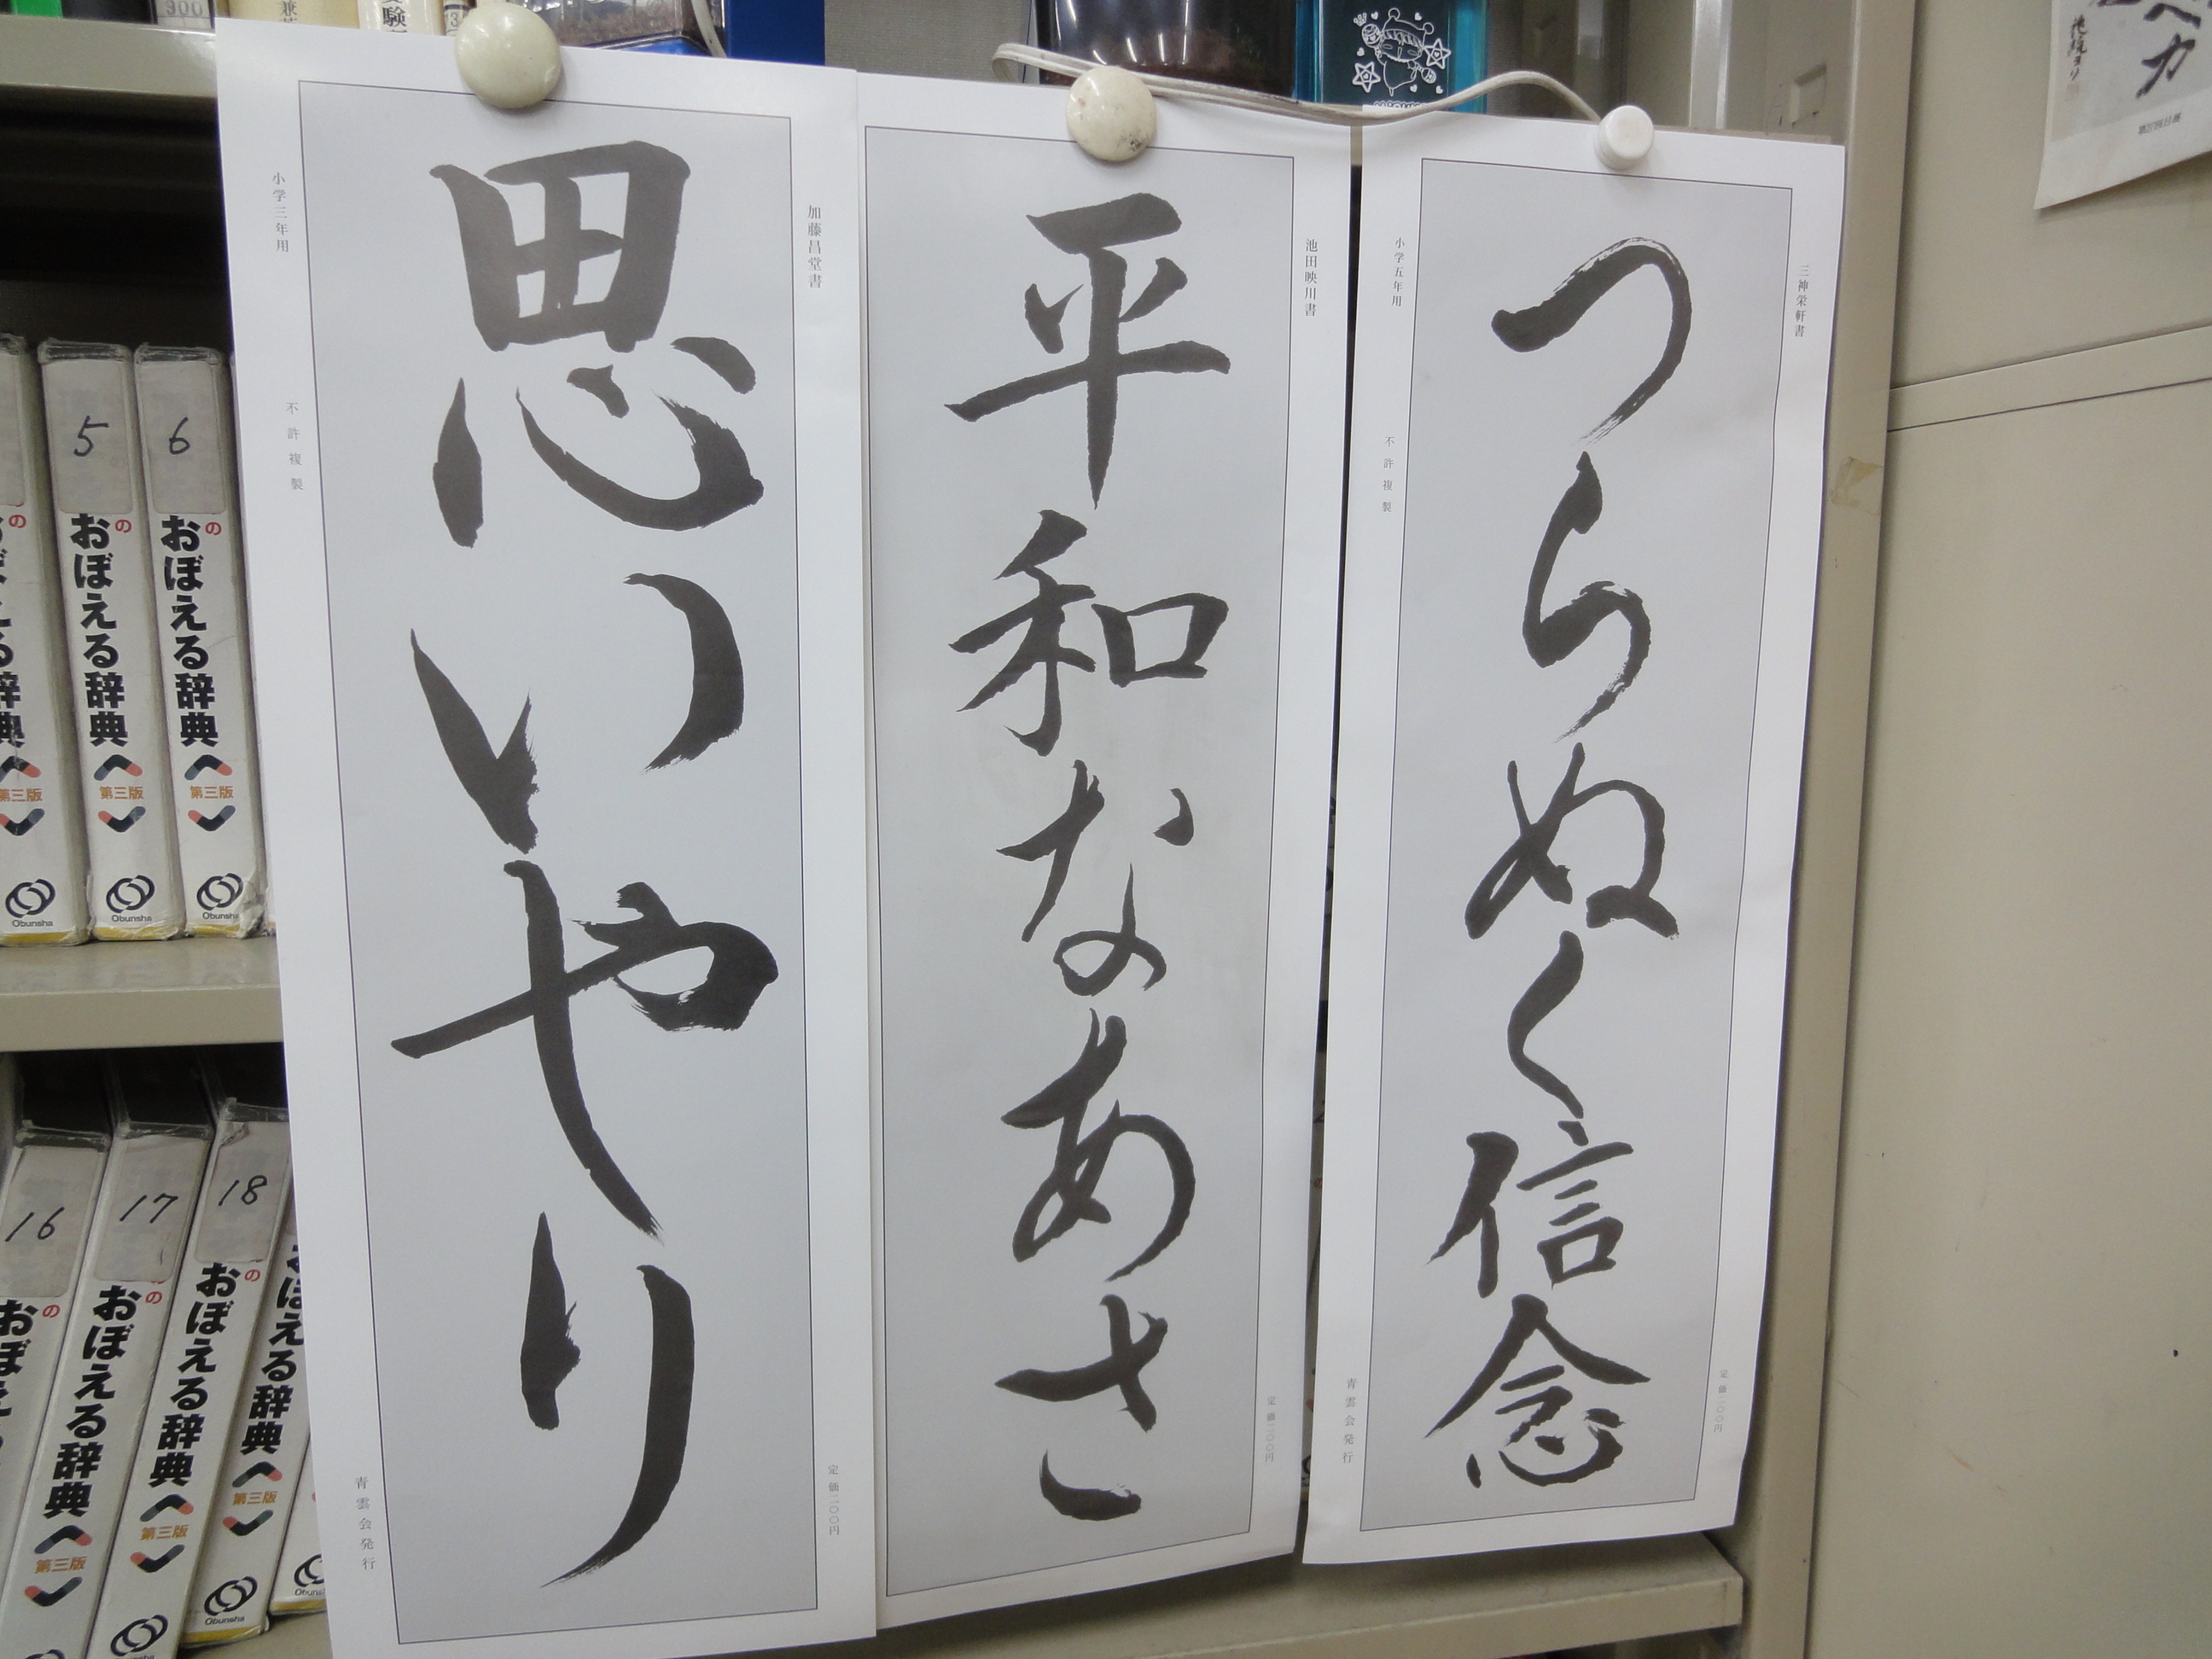 小学三年用
不許複製
青雲会発行
思いやり
加藤昌堂書
定価二〇〇円
平和なあさ
池田映川書
定価二〇〇円
小学五年用
不許複製
青雲会発行
つらぬく信念
三神栄軒書
定価二〇〇円
900
験
5
の
おぼえる辞典
第三版
Obunsha
6
の
おぼえる辞典
第三版
Obunsha
の
第三版
Obunsha
16
の
第三版
17
の
おぼえる辞典
第三版
18
の
おぼえる辞典
第三版
Obunsha
力